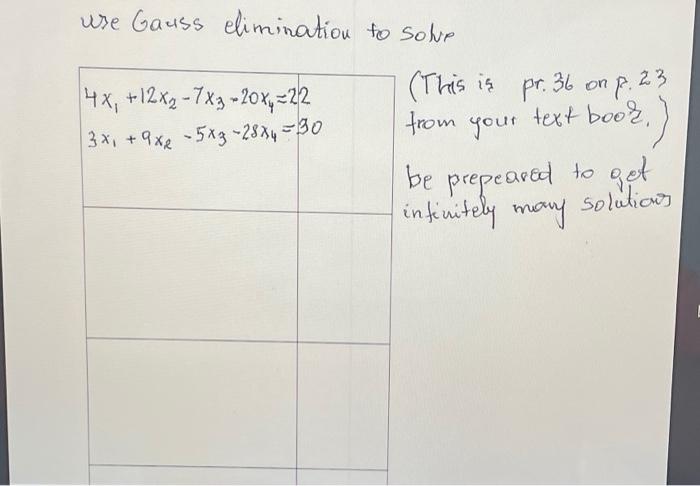 use Gauss elimination to solve
4x₁ +12x₂ -7x₃ -20x₄=22
3x₁ +9x₂ -5x₃ -28x₄ =30
(This is pr. 36 on p. 23
from your text book.)
be prepeared to get
infinitely many solutions